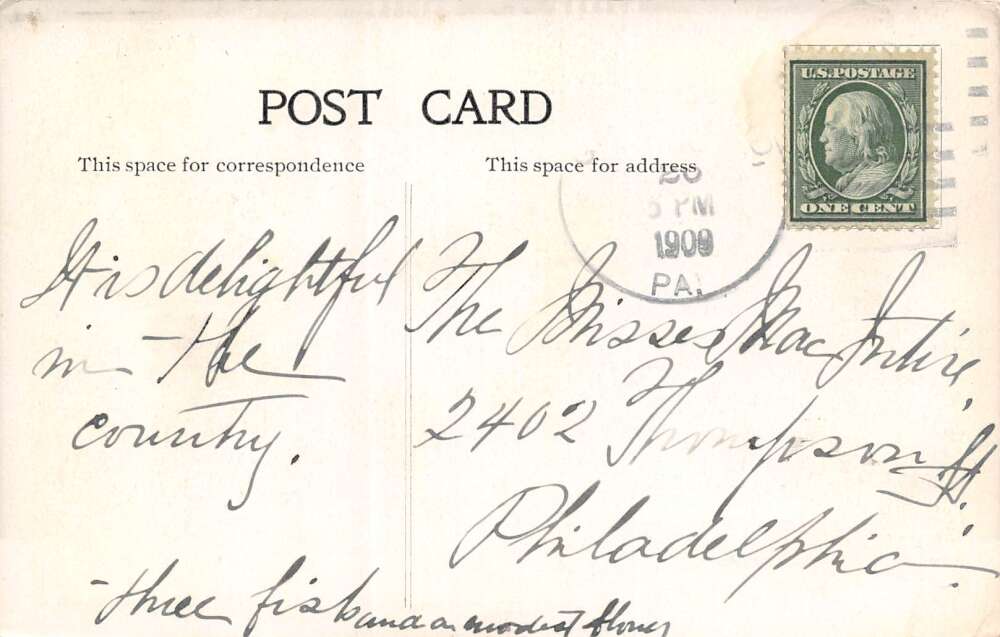 POST CARD
This space for correspondence
This space for address
U.S. POSTAGE
ONE CENT
6 PM
1909
PA.
It is delightful
in the
country.
three fish and a modest
The Misses MacIntire,
2402 Thompson St.
Philadelphia.